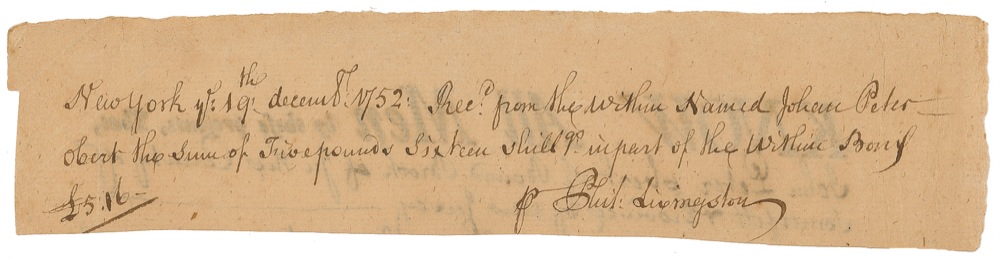 New York ye. 19th. decembr. 1752. Recd. from the within Named Johan Peter
obert the Sum of Five pounds Sixteen shillgs. in part of the Within Bond
£5..16–
p Phil: Livingston